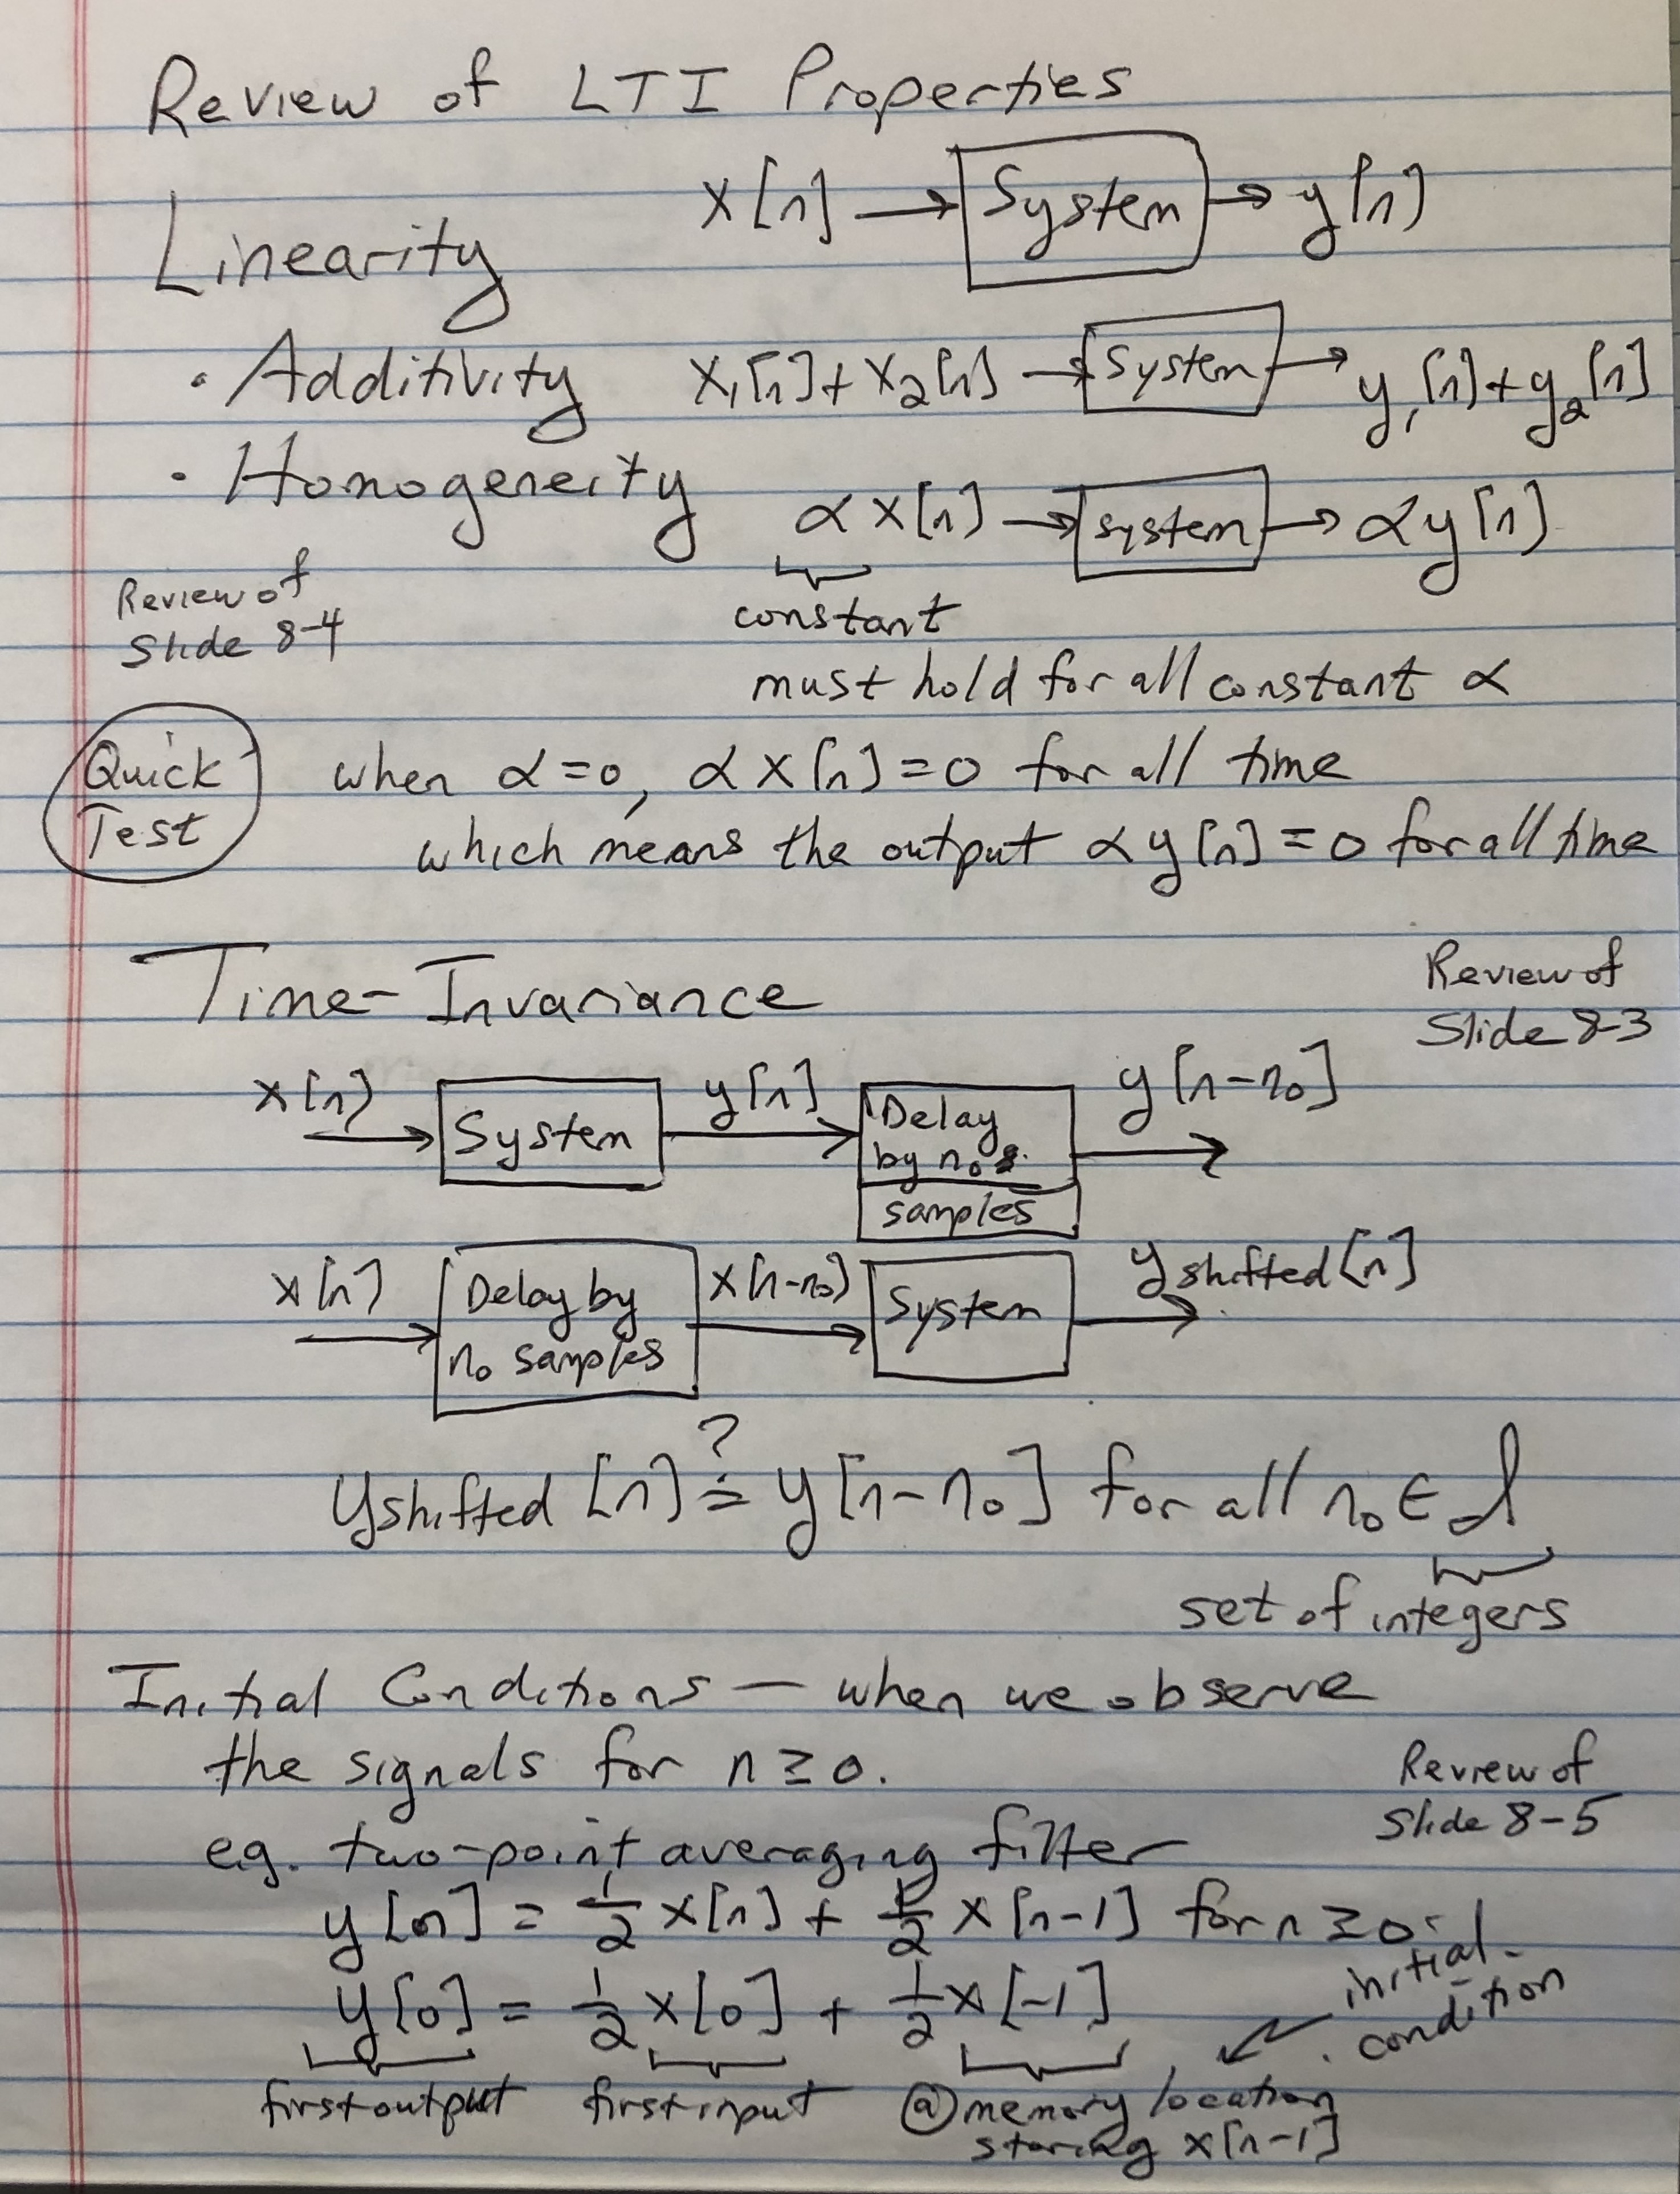 Review of LTI Properties
x[n] → System → y[n]
Linearity
• Additivity x₁[n]+x₂[n] → System → y₁[n]+y₂[n]
• Homogeneity αx[n] → system → αy[n]
constant
Review of
Slide 8-4
must hold for all constant α
Quick
Test
when α=0, αx[n]=0 for all time
which means the output αy[n]=0 for all time
Time-Invariance
Review of
Slide 8-3
x[n] → System → y[n] → Delay by n₀ samples → y[n-n₀]
x[n] → Delay by n₀ samples → x[n-n₀] → System → y shifted[n]
?
y shifted [n] = y[n-n₀] for all n₀ ∈ I
set of integers
Initial Conditions — when we observe
the signals for n ≥ 0.
Review of
Slide 8-5
e.g. two-point averaging filter
y[n] = 1/2 x[n] + 1/2 x[n-1] for n ≥ 0
y[0] = 1/2 x[0] + 1/2 x[-1]
initial
condition
first output first input @memory location
storing x[n-1]